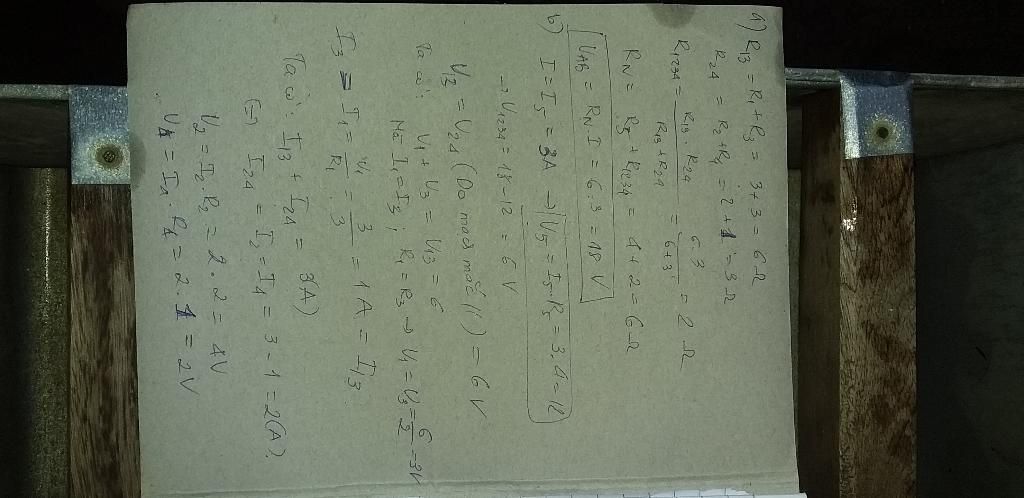 a) R13 = R1 + R3 = 3 + 3 = 6 Ω
R24 = R2 + R4 = 2 + 1 = 3 Ω
R1234 = R13 . R24 / R13 + R24 = 6.3 / 6+3 = 2 Ω
RN = R5 + R1234 = 4 + 2 = 6 Ω
UAB = RN I = 6.3 = 18 V
b) I = I5 = 3A → U5 = I5.R5 = 3.4 = 12
→ U1234 = 18 - 12 = 6 V
U13 = U24 (Do mạch mắc //) = 6 V
Ta có: U1 + U3 = U13 = 6
Mà I1 = I3; R1 = R3 → U1 = U3 = 6/2 = 3V
I3 = I1 = U1/R1 = 3/3 = 1 A = I13
Ta có: I13 + I24 = 3A)
(=) I24 = I2 = I4 = 3 - 1 = 2(A).
U2 = I2.R2 = 2.2 = 4V
U4 = I4.R4 = 2.1 = 2V